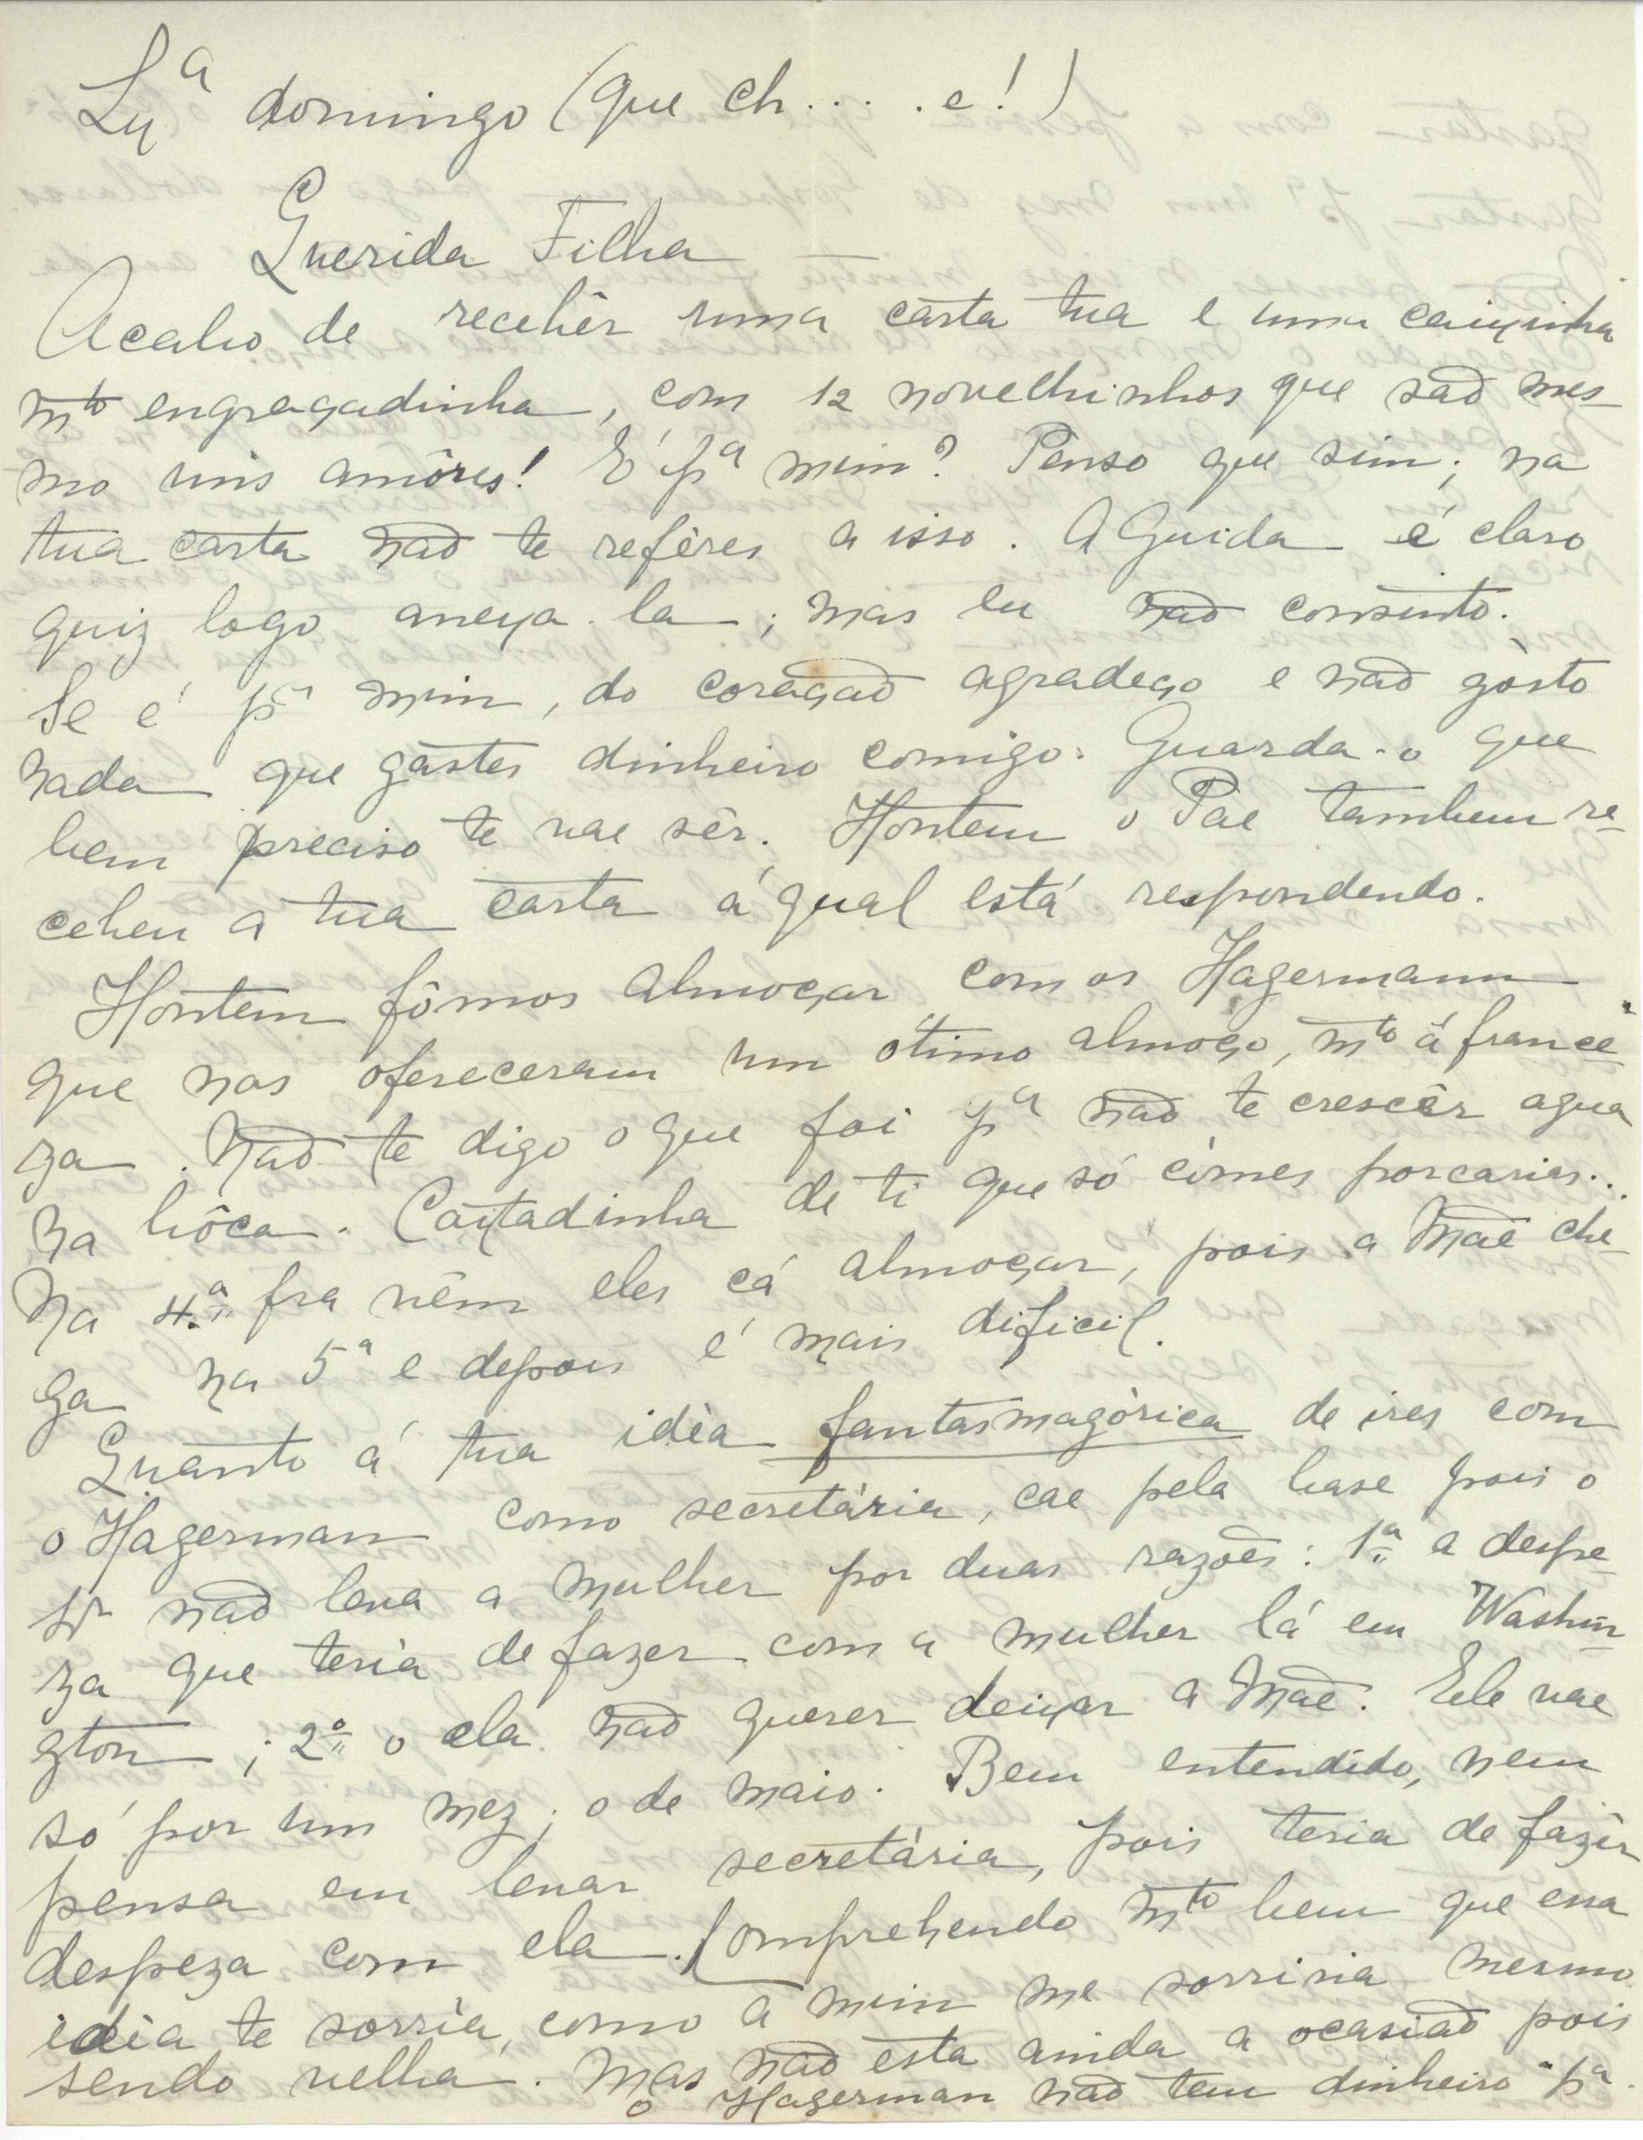 Lxª domingo (que ch.....e!)
Querida Filha
Acabo de recebêr uma carta tua e uma caixinha
mto engraçadinha, com 12 novelhinhos que são mes-
mo uns amôres! É pª mim? Penso que sim; na
tua carta não te referes a isso. A Guida é claro
quiz logo anexa-la; mas eu não consinto.
Se é pª mim, do coração agradeço e não gósto
nada que gastes dinheiro comigo. Guarda-o que
bem preciso te vae sêr. Hontem o Pae tambem re-
cebeu a tua carta á qual está respondendo.
Hontem fômos almoçar com os Hagermann
que nos ofereceram um ótimo almoço, mto á france-
za. Não te digo o que foi pª não te crescêr agua
na bôca. Coitadinha de ti que só cómes porcarias...
Na 4.ª fra vêm eles cá almoçar, pois a Mãe che-
ga na 5ª e depois é mais dificil.
Quanto á tua idèa fantasmagórica de ires com
o Hagerman como secretária, cae pela base pois o
Sr não leva a mulher por duas razões: 1ª a despe-
za que teria de fazer com a mulher lá em Washin-
gton; 2º o ela não querer deixar a Mãe. Ele vae
só por um mez; o de maio. Bem entendido, nem
pensa em levar secretária, pois teria de fazêr
despeza com ela. Comprehendo mto bem que essa
idèia te sorria, como a mim me sorriria mesmo
sendo velha. Mas não está ainda a ocasião pois
o Hagerman não tem dinheiro pª